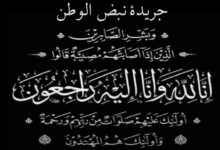 جريدة نبض الوطن
وبشر الصابرين
الذين إذا أصابتهم مصيبة قالوا
إنا لله وإنا إليه راجعون
أولئك عليهم صلوات من ربهم ورحمة
وأولئك هم المهتدون